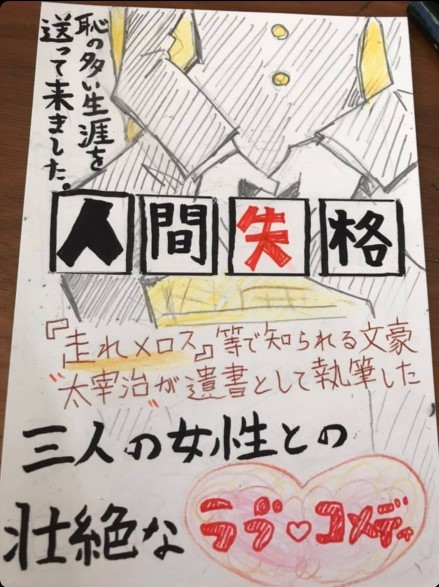 恥の多い生涯を
送って来ました。
人間失格
『走れメロス』等で知られる文豪
"太宰治"が遺書として執筆した
三人の女性との
壮絶な
ラブ♡コメディ